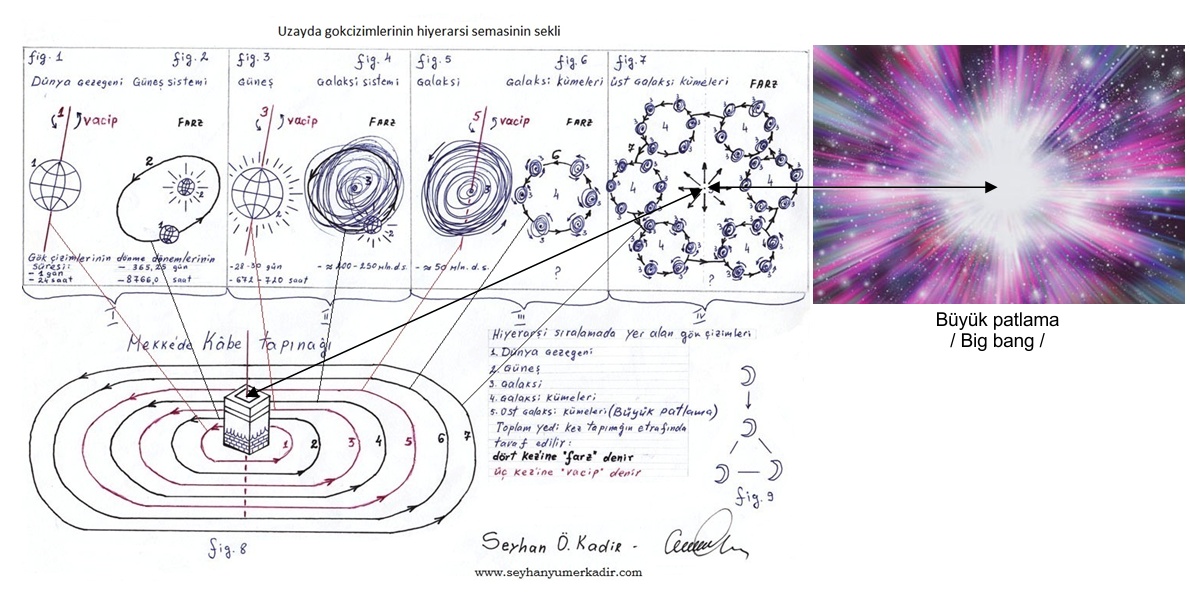 Uzayda gokcizimlerinin hiyerarsi semasinin sekli
fig. 1
fig. 2
fig. 3
fig. 4
fig. 5
fig. 6
fig. 7
Dünya gezegeni
Güneş sistemi
Güneş
Galaksi sistemi
Galaksi
Galaksi kümeleri
üst galaksi kümeleri
FARZ
1
vacip
FARZ
3
vacip
FARZ
5
vacip
FARZ
Gök çizimlerinin dönme dönemlerinin
süresi:
- 1 gün
- 24 saat
- 365,25 gün
- 8766,0 saat
- 28-30 gün
- 672-720 saat
- ≈ 200-250 mln.d.s.
- ≈ 50 mln.d.s.
?
?
I
II
III
IV
Büyük patlama
/ Big bang /
Mekke'de Kâbe tapınağı
1
2
3
4
5
6
7
fig. 8
Hiyerarşi sıralamada yer alan gök çizimleri
1. Dünya gezegeni
2. Güneş
3. Galaksi
4. Galaksi kümeleri
5. Üst galaksi kümeleri (Büyük patlama)
Toplam yedi kez tapınağın etrafında
tavaf edilir:
dört kez'ine "farz" denir
üç kez'ine "vacip" denir
fig. 9
Seyhan Ö. Kadir -
www.seyhanyumerkadir.com